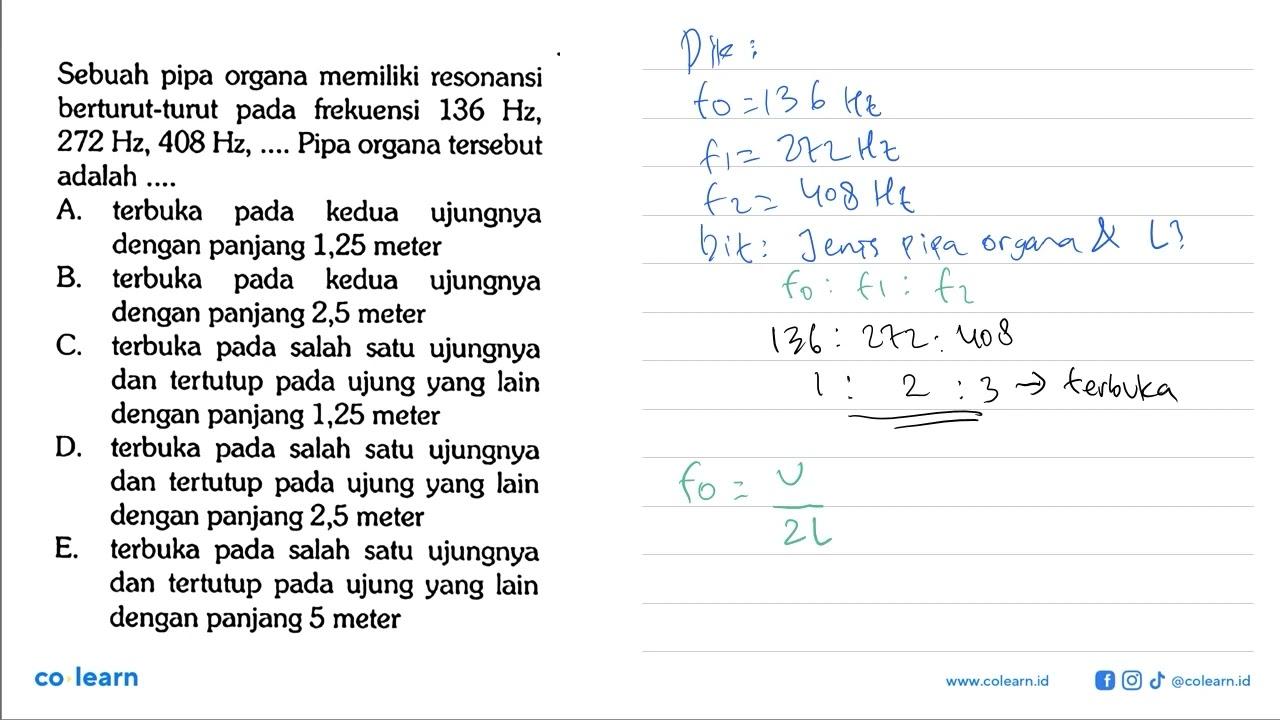 Sebuah pipa organa memiliki resonansi
berturut-turut pada frekuensi 136 Hz,
272 Hz, 408 Hz, .... Pipa organa tersebut
adalah ....
A. terbuka pada kedua ujungnya
dengan panjang 1,25 meter
B. terbuka pada kedua ujungnya
dengan panjang 2,5 meter
C. terbuka pada salah satu ujungnya
dan tertutup pada ujung yang lain
dengan panjang 1,25 meter
D. terbuka pada salah satu ujungnya
dan tertutup pada ujung yang lain
dengan panjang 2,5 meter
E. terbuka pada salah satu ujungnya
dan tertutup pada ujung yang lain
dengan panjang 5 meter
Dik :
f0 = 136 Hz
f1 = 272 Hz
f2 = 408 Hz
Dit : Jenis pipa organa & L?
f0 : f1 : f2
136 : 272 : 408
1 : 2 : 3 → terbuka
f0 = v
2L
co learn
www.colearn.id
@colearn.id